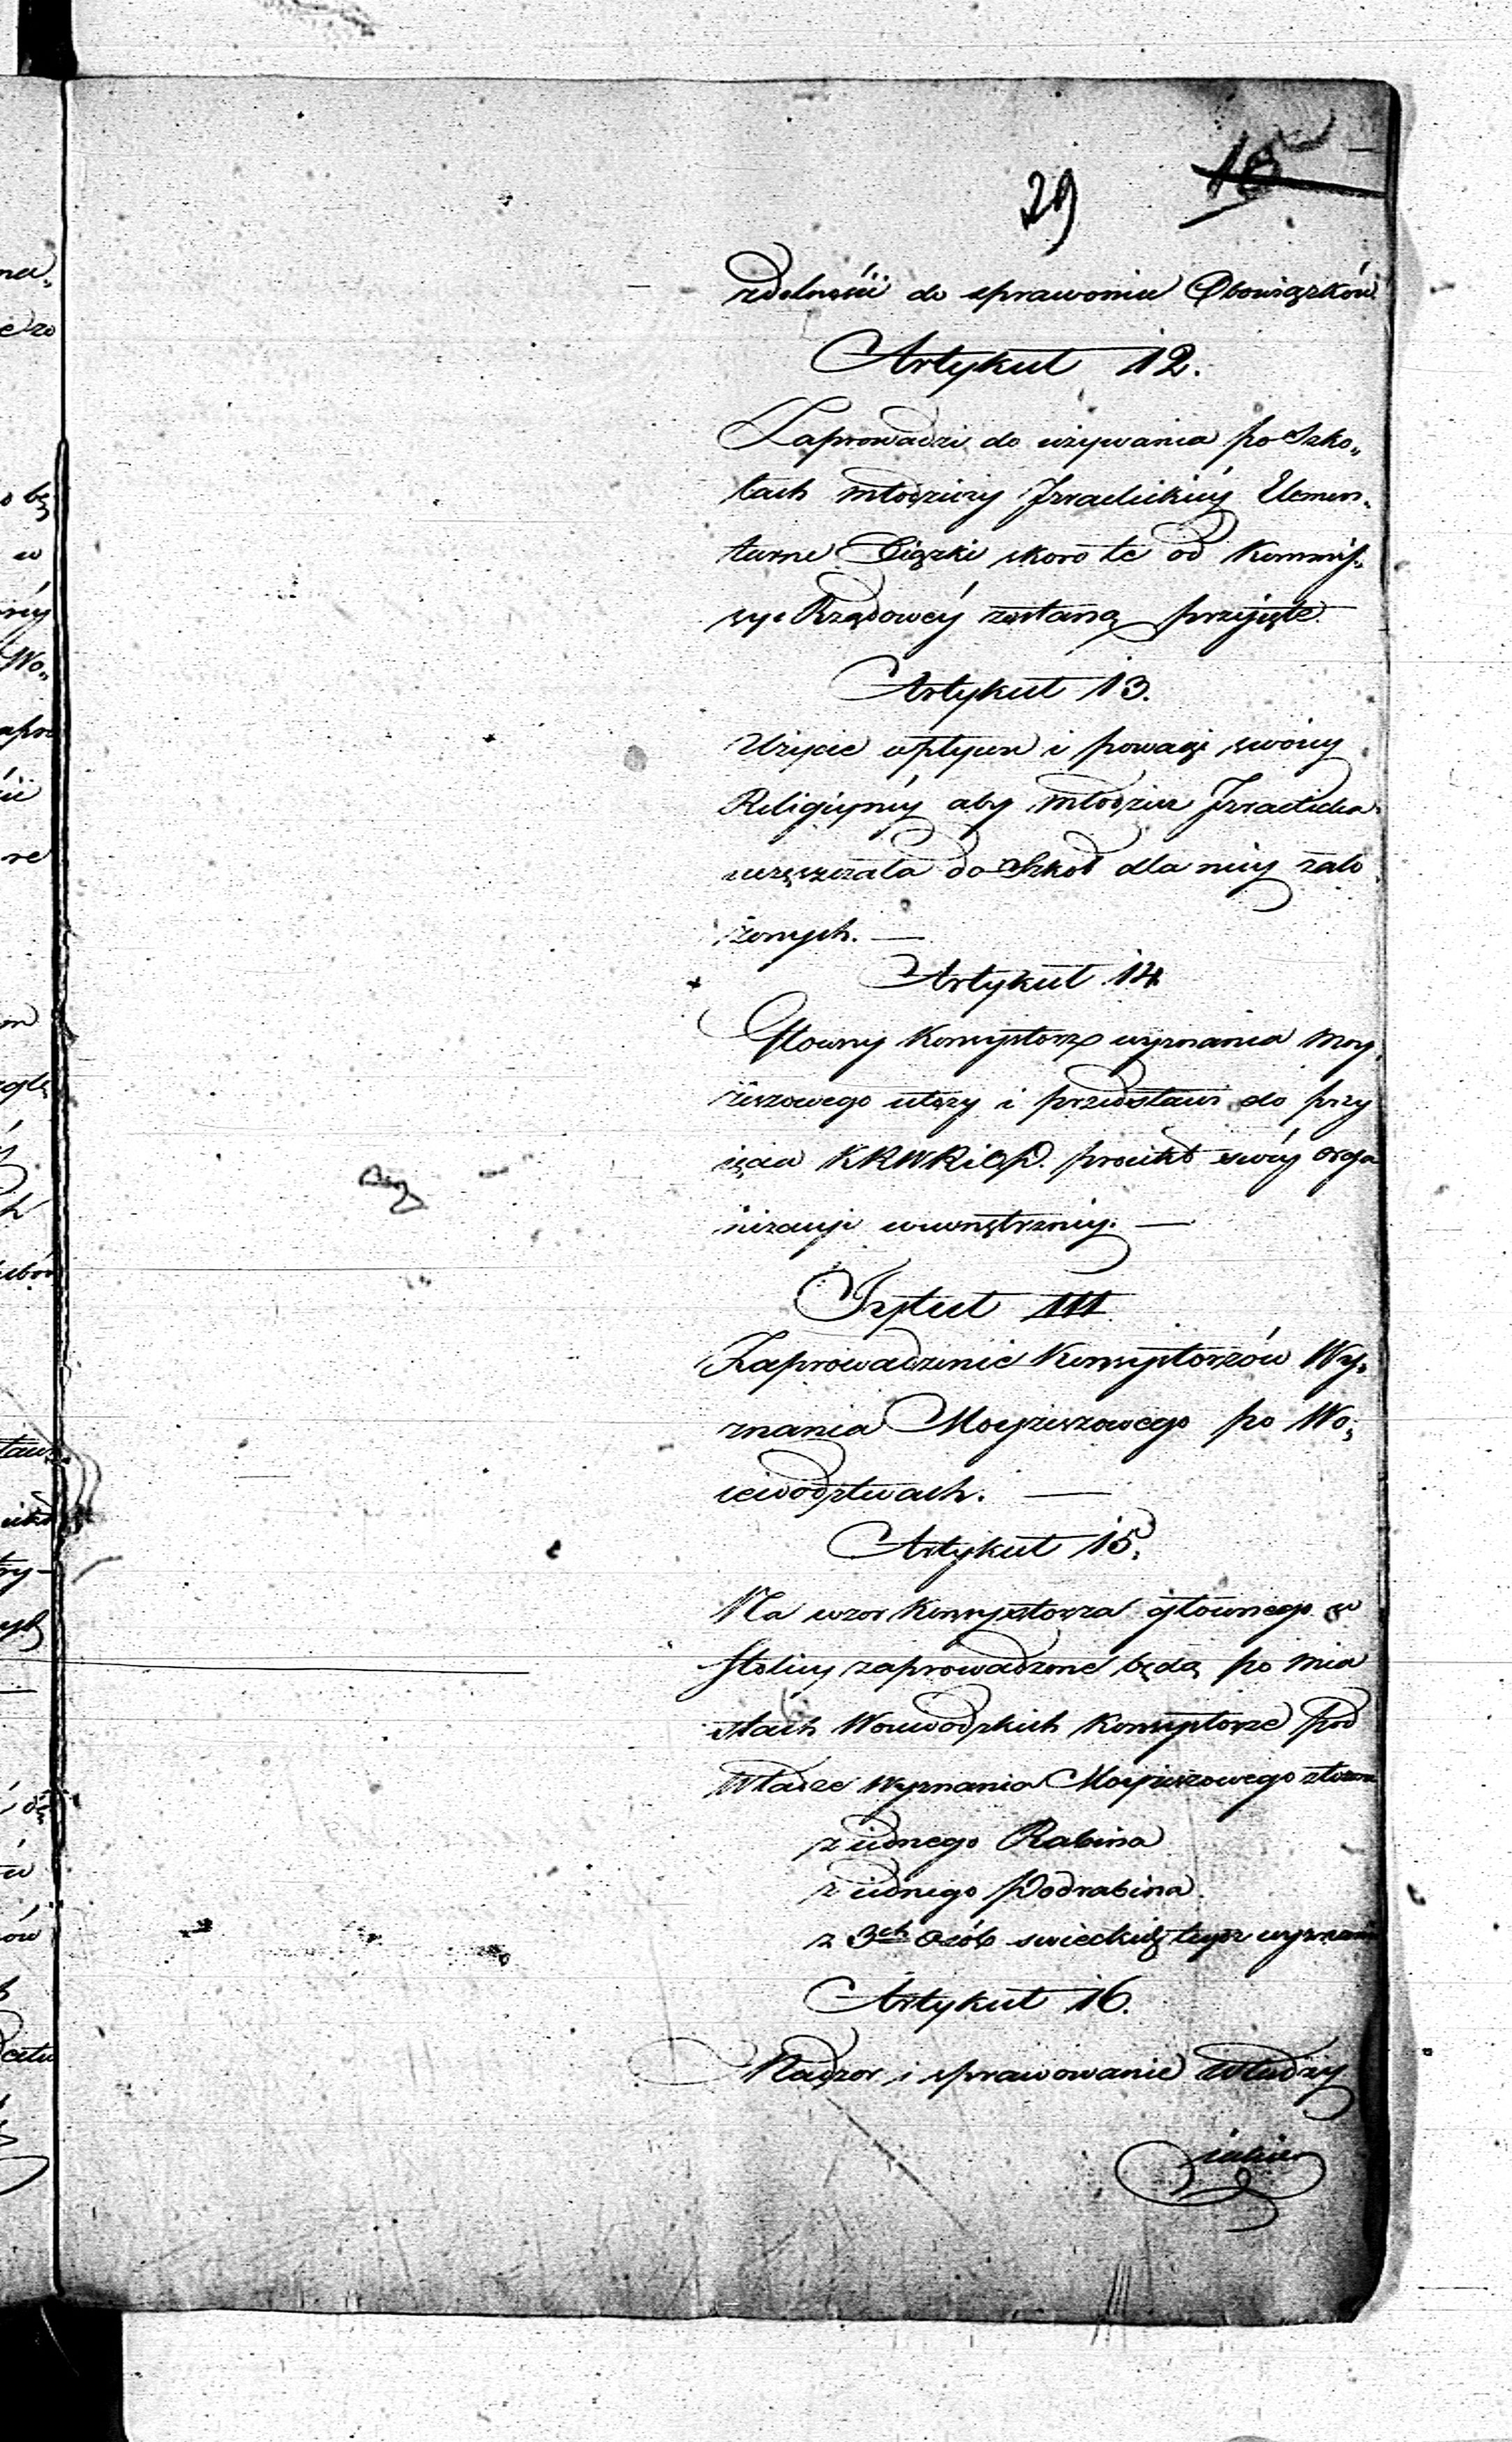 29
zdolności do sprawowania Obowiązków
Artykuł 12.
Zaprowadzi do używania po Szko„
łach młodzieży Izraelickiéy Elemen„
tarne Xiążki skoro te od Kommis„
syi Rządowéy zostaną przyjęte.
Artykuł 13.
Użycie wpływu i powagi swoiéy
Religijnéy aby młodzież Izraelicka
uczęszczała do Szkoł dla niéy zało
żonych. —
Artykuł 14
Głowny Konsystorz wyznania Moy„
żeszowego ułoży i przedstawi do przy
ięcia KRWRiOP. proiekt swéy orga
nizacyi wewnętrznéy. —
Tytuł III
Zaprowadzenie Konsystorzów Wy„
znania Moyżeszowego po Wo„
iewodztwach. —
Artykuł 15.
Na wzor Konsystorza głównego w
stolicy zaprowadzone będą po mia
stach Woiewodzkich Konsystorze pod
Władze Wyznania Moyżeszowego złożone
z iednego Rabina
z iednego Podrabina.
z 3ch Osób swieckich tegoż wyznania
Artykuł 16.
Nadzor i sprawowanie Władzy
iakie